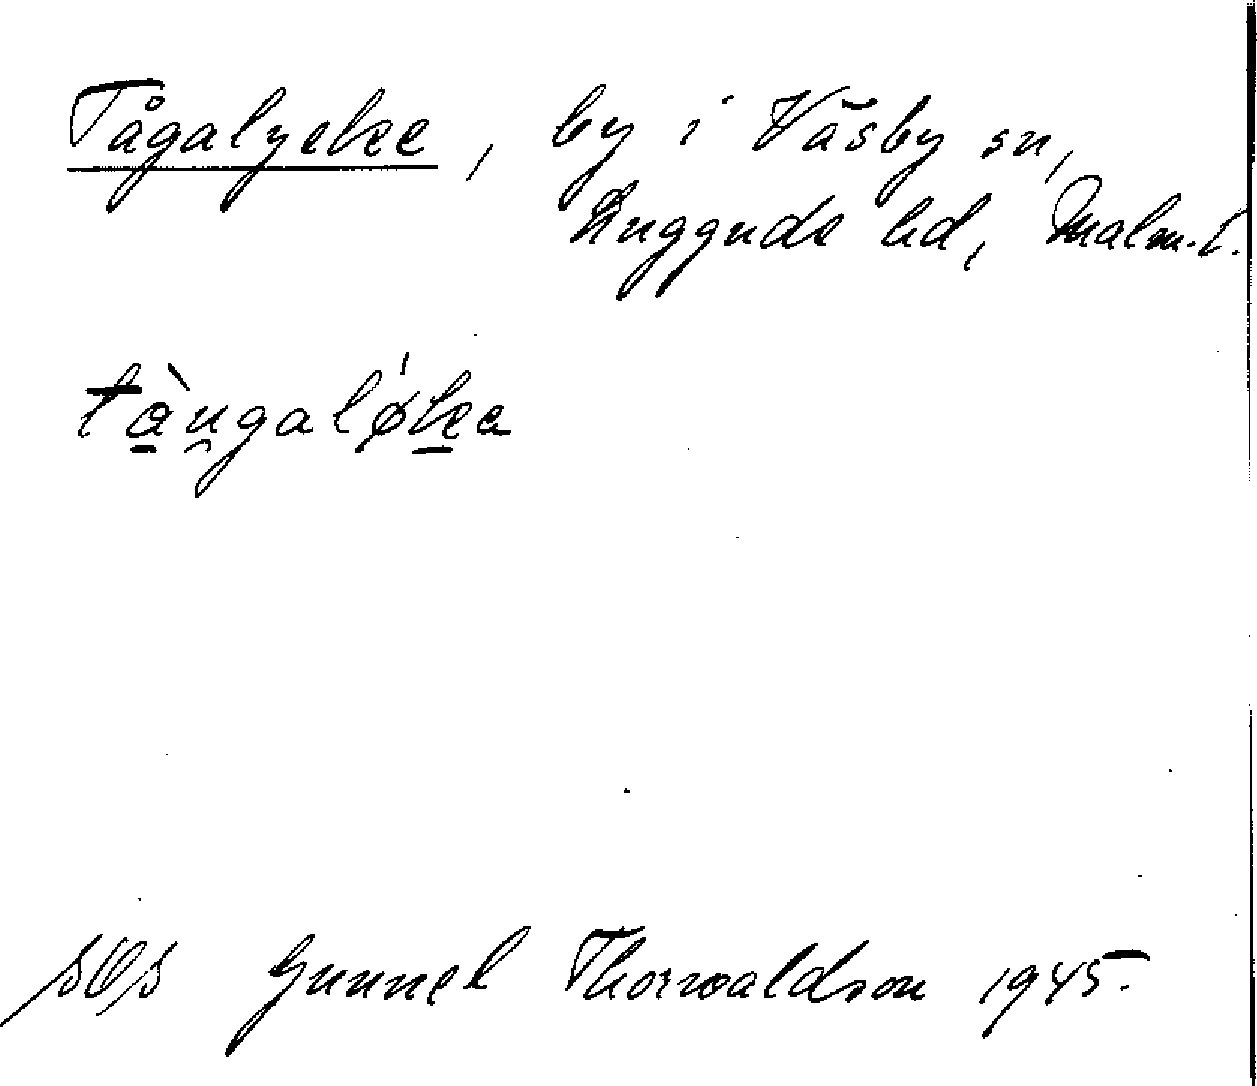 Tågalycke, by i Väsby sn,
Luggude hd, Malm.l.
tà̱ṋgaló̷ḵa
SOS Gunnel Thorwaldson 1945.